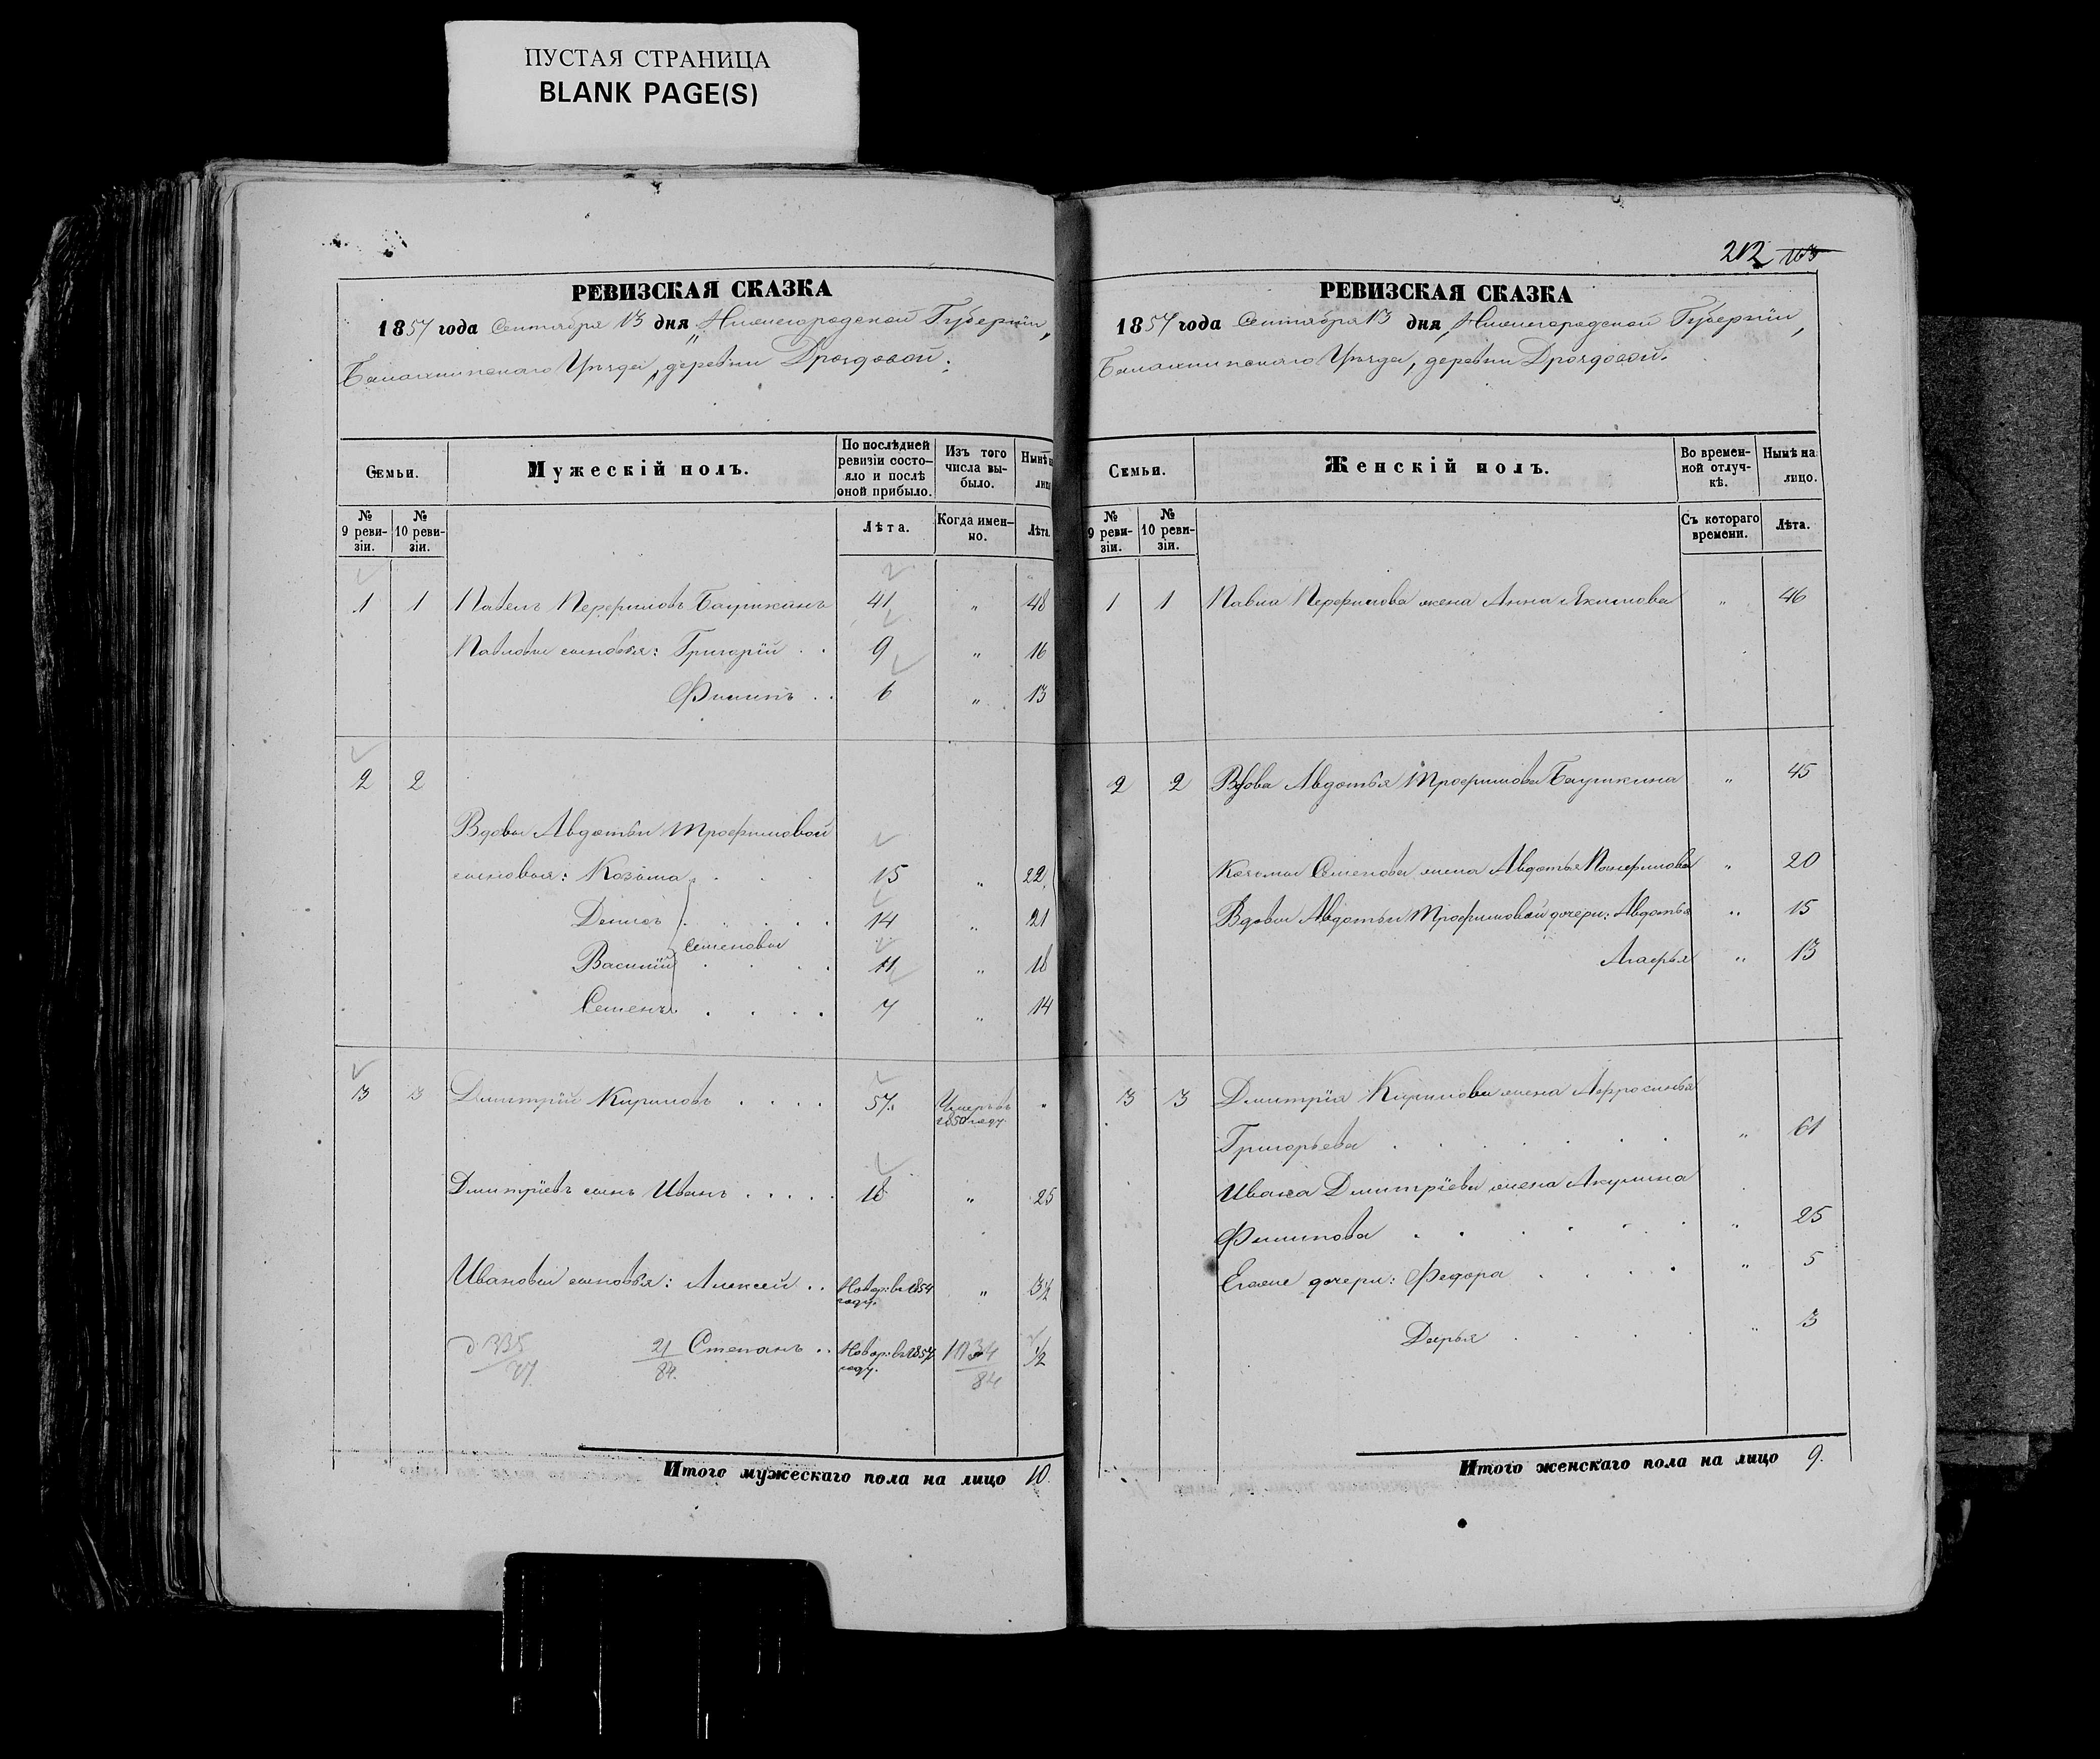 ПУСТАЯ СТРАНИЦА
BLANK PAGE(S)
РЕВИЗСКАЯ СКАЗКА
1857 года Сентября 13 дня, Нижегородской Губерніи,
Балахнинскаго Уѣзда, деревни Дроздовой.
Семьи.
Мужескій полъ.
По послѣдней ревизіи состо-
яло и послѣ оной прибыло.
Изъ того числа вы-
было.
Нынѣ на
лицо
№ 9 реви-
зіи.
№ 10 реви-
зіи.
Лѣта.
Когда имен-
но.
Лѣта.
1 1 Павелъ Перфиловъ Баушкинъ 41 " 48
Павловы сыновья: Григорій . . 9 " 16
Филипъ . . 6 " 13
2 2
Вдовы Авдотьи Трофимовой
сыновья: Козьма . . . 15 " 22
Денисъ . . . . 14 " 21
Семеновы
Василій . . . . 11 " 18
Семенъ . . . . 7 " 14
3 3 Дмитрій Кириловъ . . . . 57 Умеръ въ "
1850 году.
Дмитріевъ сынъ Иванъ . . . . . 18 " 25
Ивановы сыновья: Алексей . . Новор: въ 1854 " 3½
году.
335 21 Степанъ . . Новор: въ 1857 ½
77 84. году. 84
Итого мужескаго пола на лицо 10.
212 163
РЕВИЗСКАЯ СКАЗКА
1857 года Сентября 13 дня, Нижегородской Губерніи,
Балахнинскаго Уѣзда, деревни Дроздовой.
Семьи.
Женскій полъ.
Во времен-
ной отлуч-
кѣ.
Нынѣ на
лицо.
№ 9 реви-
зіи.
№ 10 реви-
зіи.
Съ котораго
времени.
Лѣта.
1 1 Павла Перфилова жена Анна Якимова " 46
2 2 Вдова Авдотья Трофимова Баушкина " 45
Козьмы Семенова жена Авдотья " 20
Вдовы Авдотьи Трофимовой дочери: Авдотья " 15
Агафья " 13
3 3 Дмитрія Кирилова жена Афросинья
Григорьева . . . . . . " 61
Ивана Дмитріева жена Акулина
Филипова . . . . . . " 25
Егоже дочери: Федора . . . . " 5
Дарья . . . . " 3
Итого женскаго пола на лицо 9.